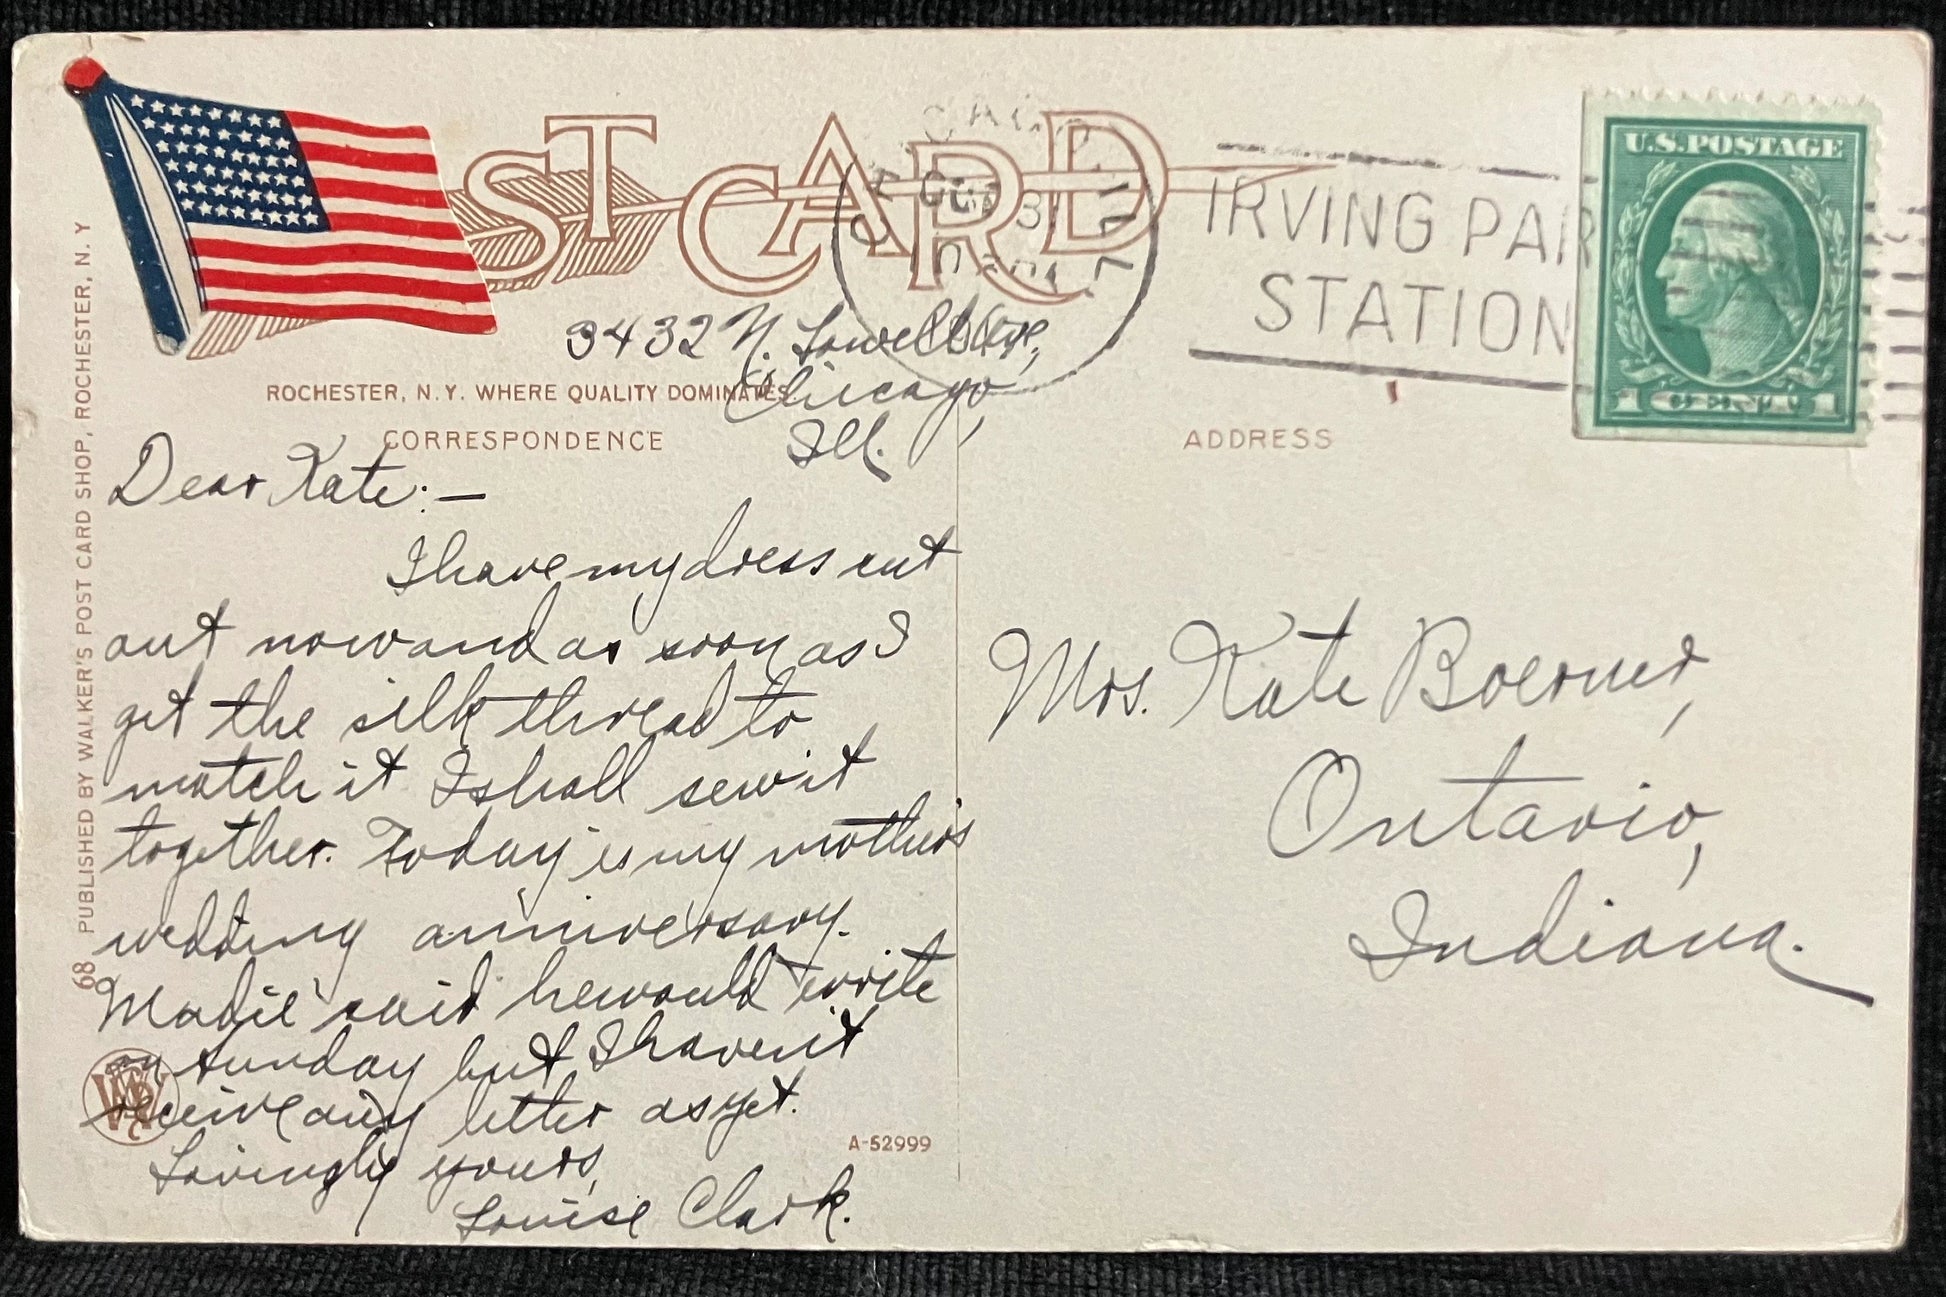 ST CARD
CHICAGO, ILL.
IRVING PAR
STATION
U.S.POSTAGE
1 CENT 1
3432 N. Lowell Ave,
Chicago,
Ill.
ROCHESTER, N.Y. WHERE QUALITY DOMINATES
CORRESPONDENCE
ADDRESS
Dear Kate:—
I have my dress cut
out now and as soon as I
get the silk thread to
match it I shall sew it
together. Today is my mother's
wedding anniversary.
said he would write
on Sunday but I haven't
receive any letter as yet.
Lovingly yours,
Louise Clark.
Mrs. Kate Boerner,
Ontario,
Indiana.
A-52999
68 PUBLISHED BY WALKER'S POST CARD SHOP, ROCHESTER, N. Y